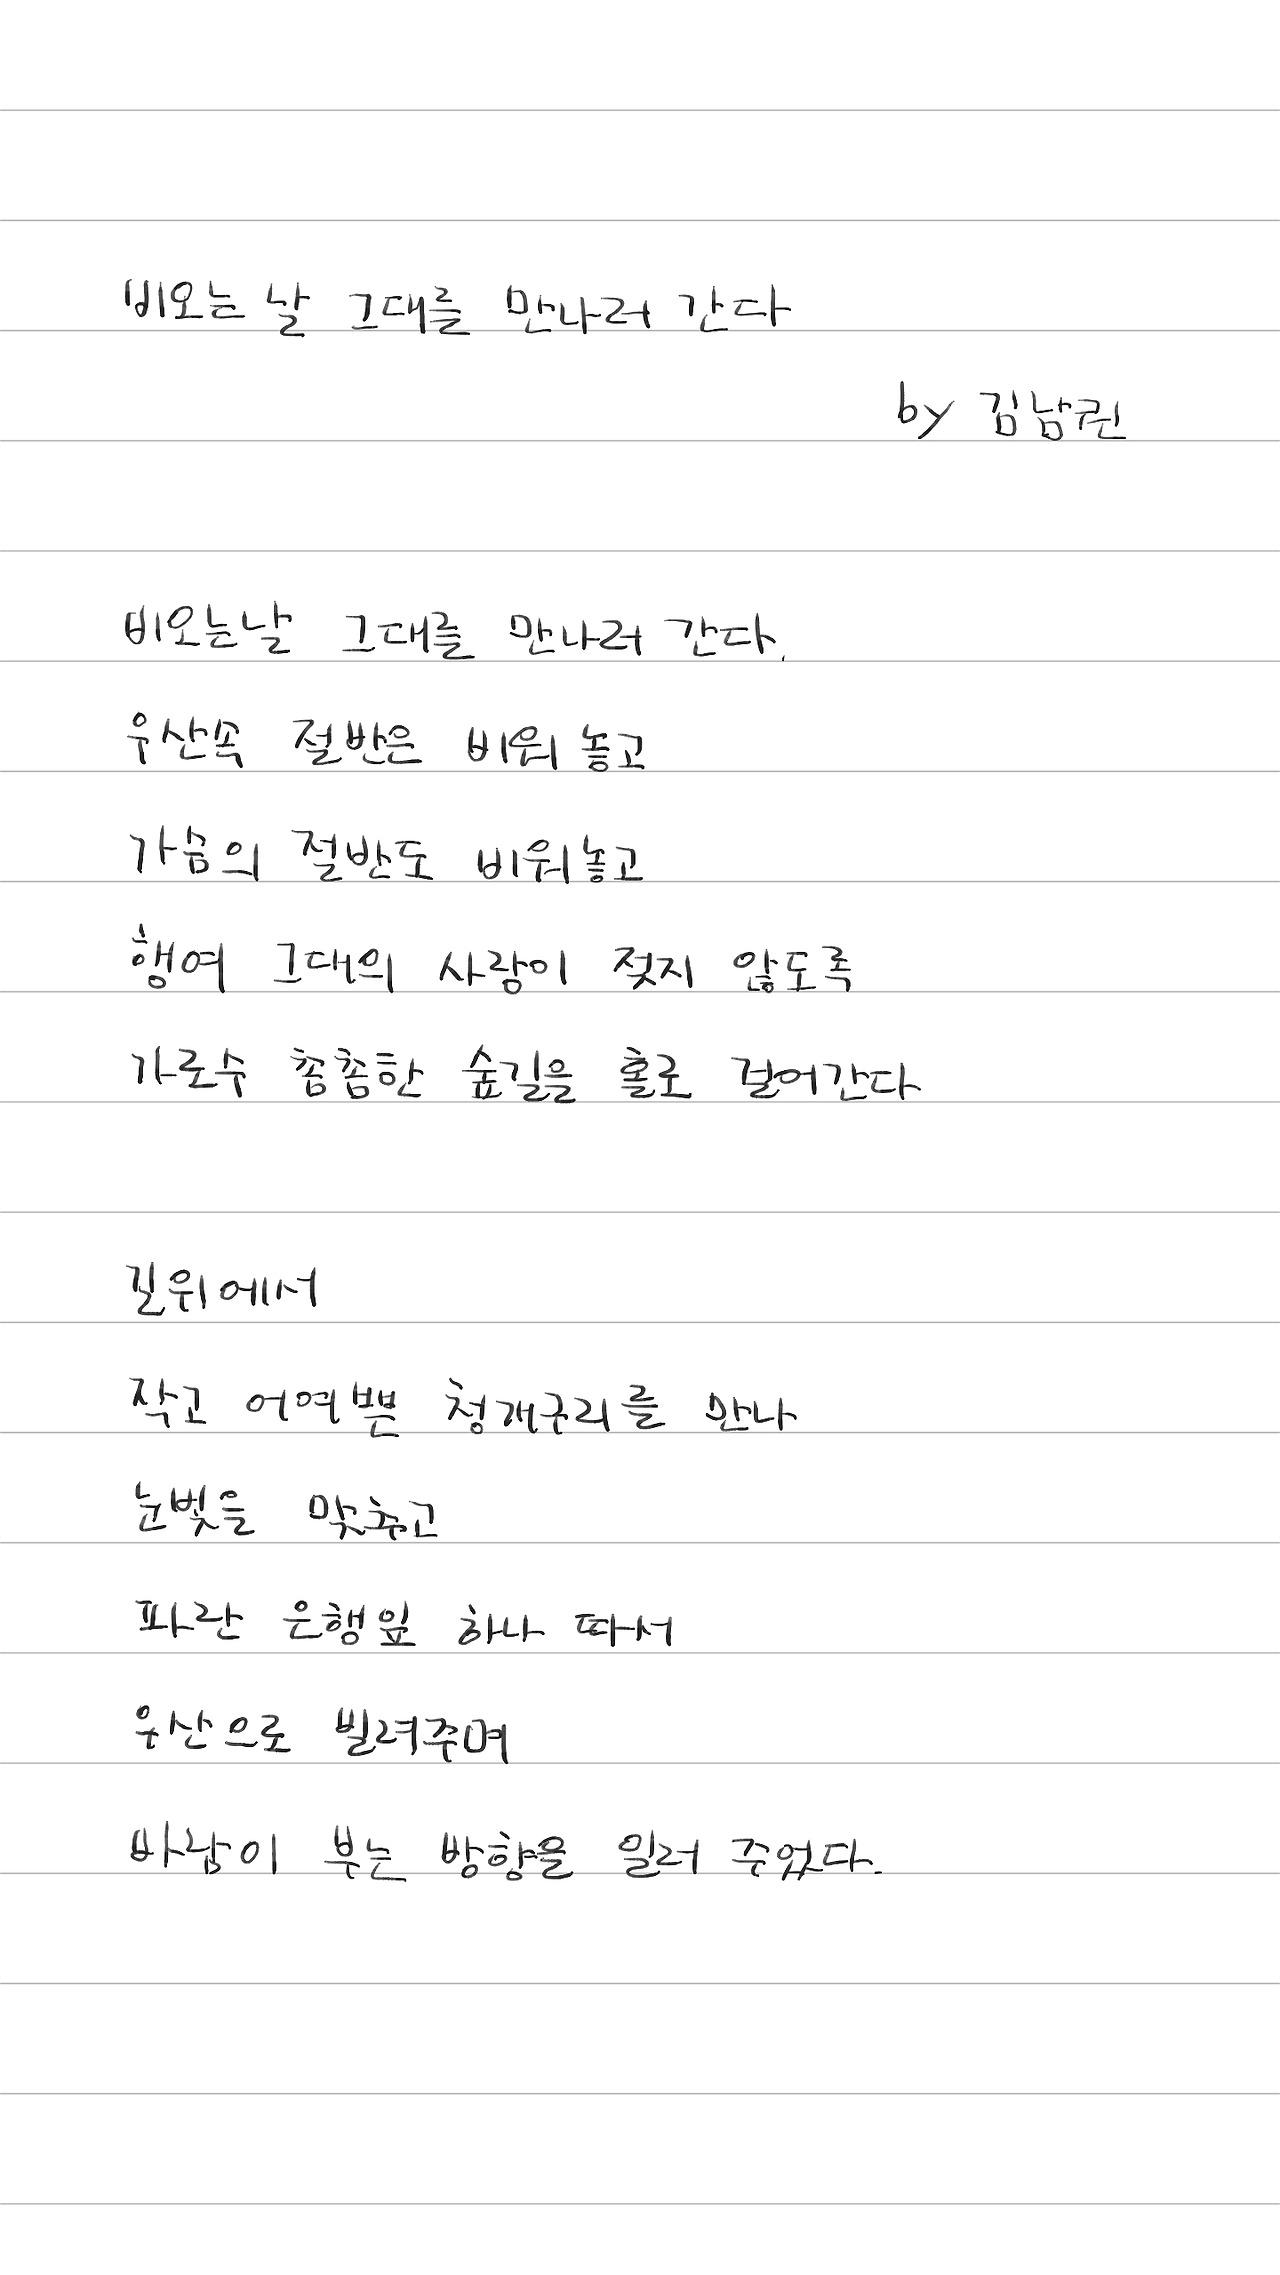 비오는 날 그대를 만나러 간다
by 김남권
비오는날 그대를 만나러 간다.
우산속 절반은 비워 놓고
가슴의 절반도 비워놓고
행여 그대의 사랑이 젖지 않도록
가로수 촘촘한 숲길을 홀로 걸어간다
길위에서
작고 어여쁜 청개구리를 만나
눈빛을 맞추고
파란 은행잎 하나 따서
우산으로 빌려주며
바람이 부는 방향을 일러 주었다.